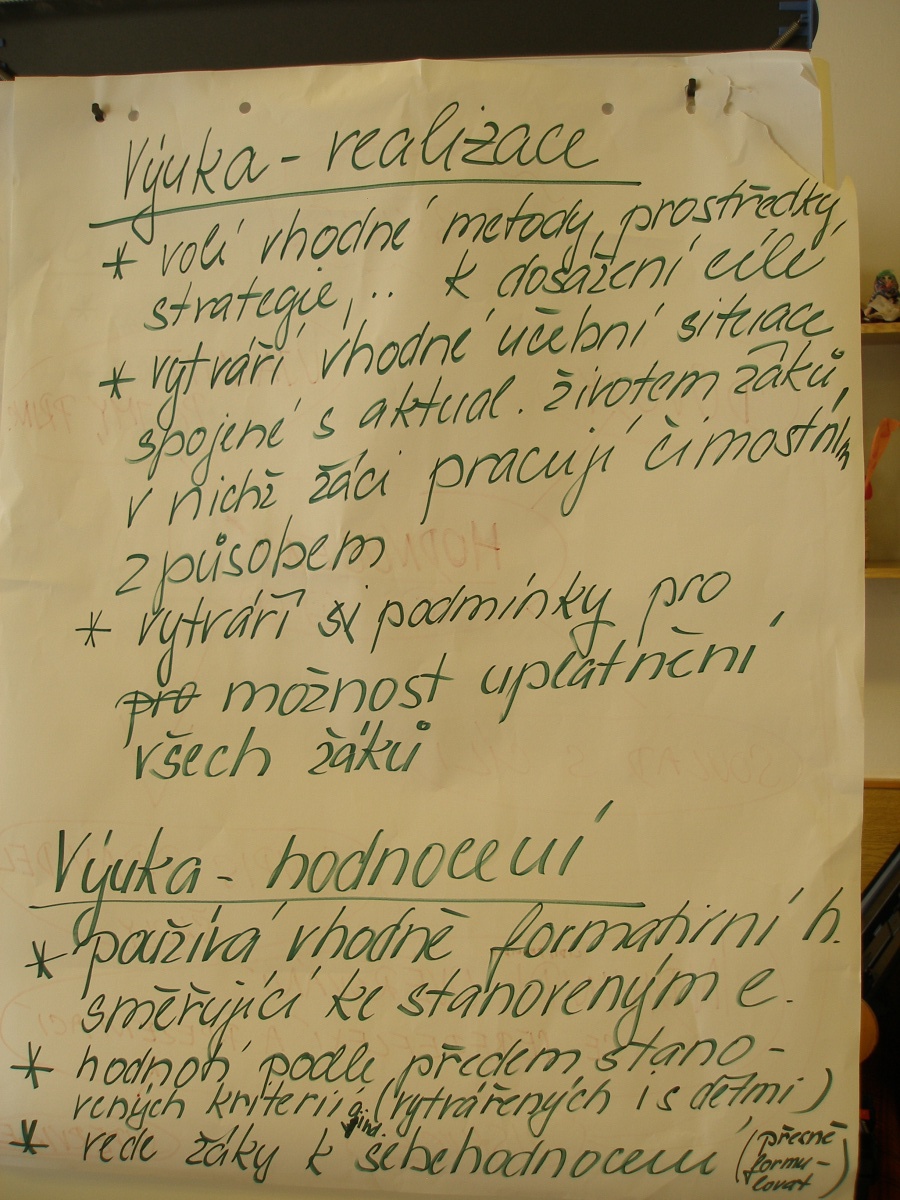 Výuka - realizace
* volí vhodné metody, prostředky,
strategie,.. k dosažení cílů
* vytváří vhodné učební situace
spojené s aktual. životem žáků,
v nichž žáci pracují činnostním
způsobem
* vytváří si podmínky pro
pro možnost uplatnění
všech žáků
Výuka - hodnocení
* používá vhodně formativní h.
směřující ke stanoveným c.
* hodnotí podle předem stano-
vených kriterií (vytvářených i s dětmi)
* vede žáky k sebehodnocení (přesně
formu-
lovat